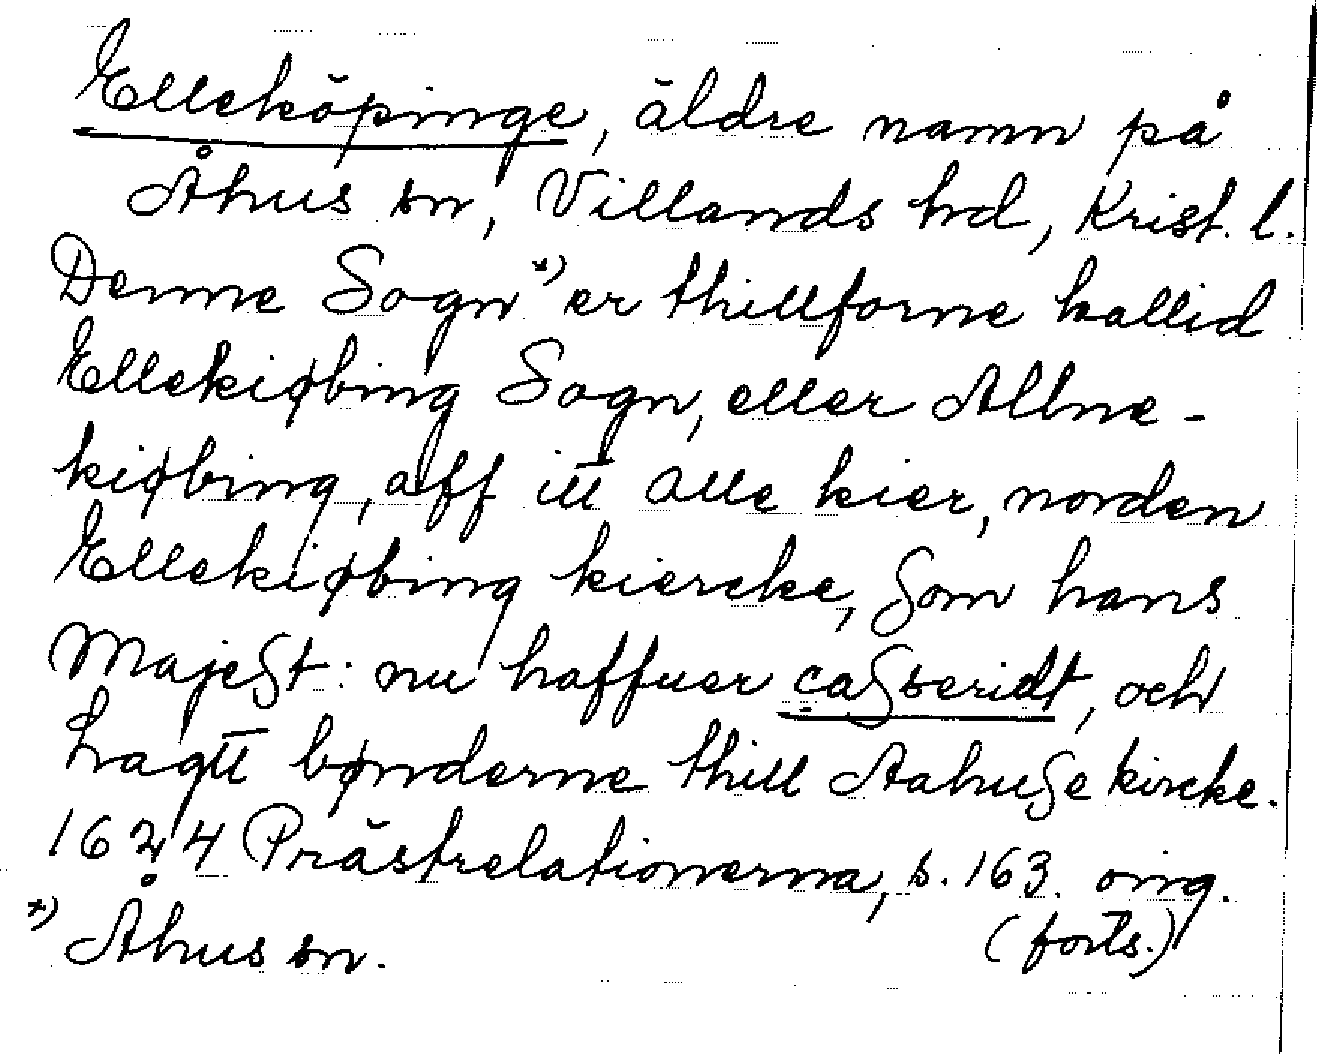 Elleköpinge, äldre namn på
Åhus sn, Villands hd, Krist. l.
Denne Sogn*) er thillforne kallid
Ellekiøbing Sogn, eller Allne-
kiøbing, aff itt alle kier, norden
Ellekiøbing kiercke, som hans
Majest: nu haffuer casseridt, och
lagtt bønderne thill Aahuse kircke.
1624 Prästrelationerna, s. 163. oing.
*) Åhus sn. (forts.)